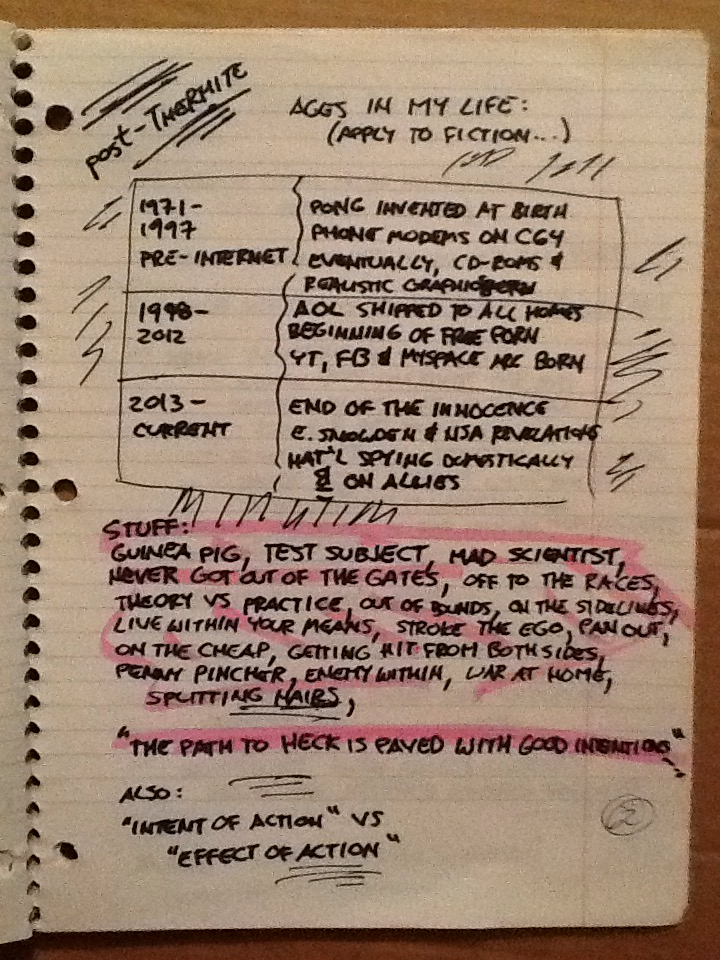 post-THERMITE
AGES IN MY LIFE:
(APPLY TO FICTION...)
1971-
1997
PRE-INTERNET
PONG INVENTED AT BIRTH
PHONE MODEMS ON C64
EVENTUALLY, CD-ROMS &
REALISTIC GRAPHIC
1998-
2012
AOL SHIPPED TO ALL HOMES
BEGINNING OF FREE PORN
YT, FB & MYSPACE ARE BORN
2013-
CURRENT
END OF THE INNOCENCE
E. SNOWDEN & NSA REVELATIONS
NAT'L SPYING DOMESTICALLY
& ON ALLIES
STUFF:
GUINEA PIG, TEST SUBJECT, MAD SCIENTIST,
NEVER GOT OUT OF THE GATES, OFF TO THE RACES,
THEORY VS PRACTICE, OUT OF BOUNDS, ON THE SIDELINES,
LIVE WITHIN YOUR MEANS, STROKE THE EGO, PAN OUT,
ON THE CHEAP, GETTING HIT FROM BOTH SIDES,
PENNY PINCHER, ENEMY WITHIN, WAR AT HOME,
SPLITTING HAIRS,
"THE PATH TO HECK IS PAVED WITH GOOD INTENTIONS"
ALSO:
"INTENT OF ACTION" VS
"EFFECT OF ACTION"
2